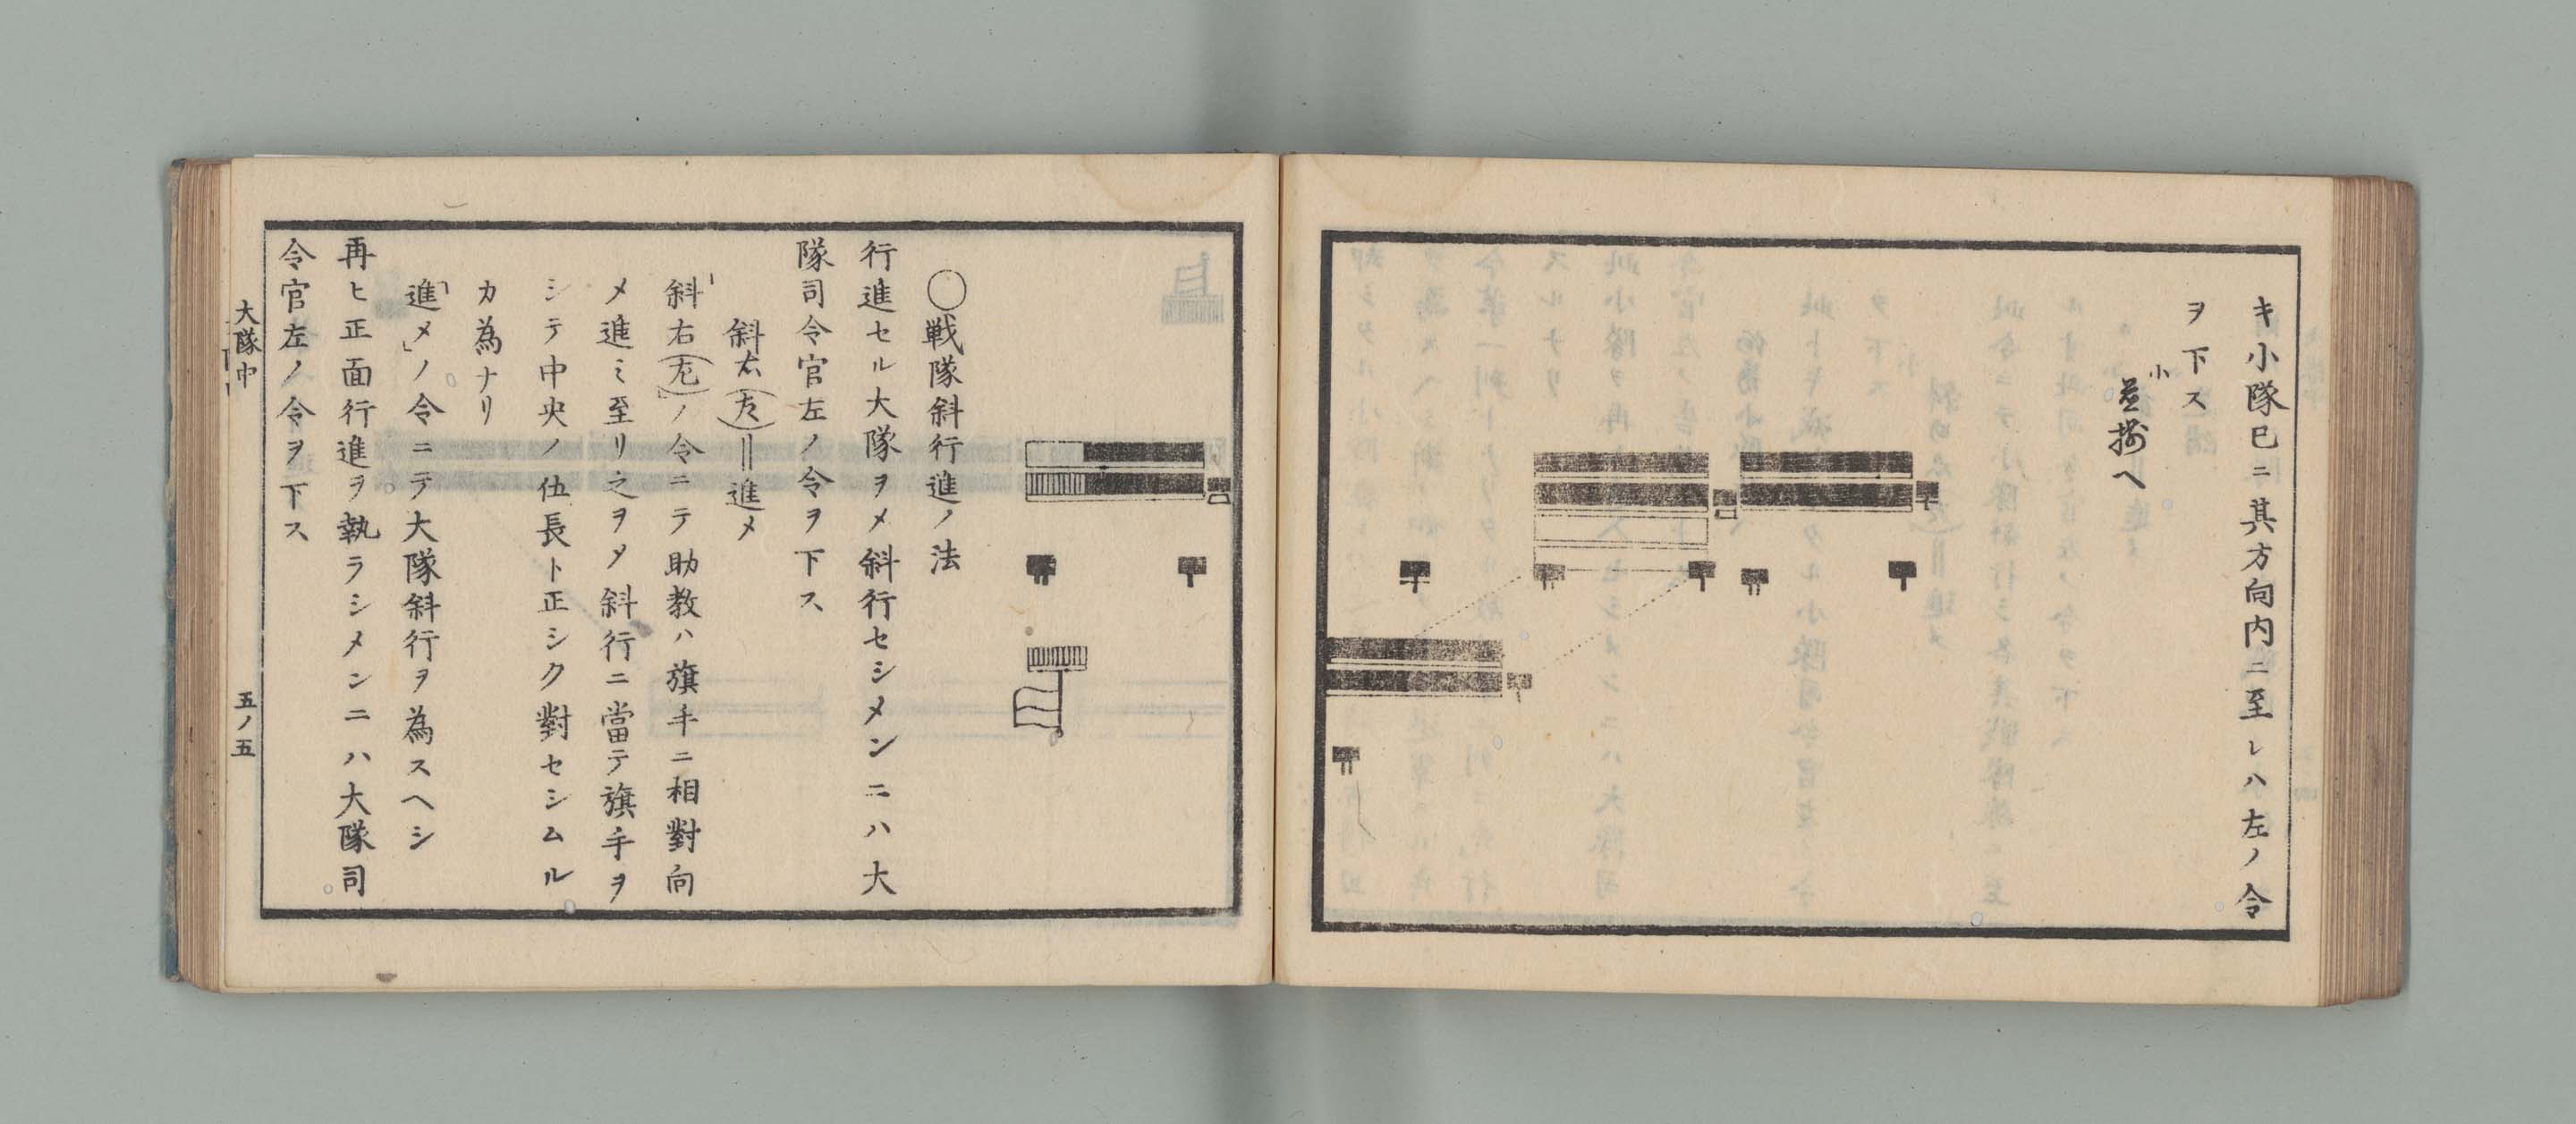 キ小隊已ニ其方向内ニ至レハ左ノ令
ヲ下ス
小
並揃へ
○戦隊斜行進ノ法
行進セル大隊ヲメ斜行セシメンニハ大
隊司令官左ノ令ヲ下ス
斜右(左)‖進メ
「斜右(左)」ノ令ニテ助教ハ旗手ニ相對向
メ進ミ至リ之ヲメ斜行ニ當テ旗手ヲ
シテ中央ノ伍長ト正シク對セシムル
カ為ナリ
「進メ」ノ令ニテ大隊斜行ヲ為スヘシ
再ヒ正面行進ヲ執ラシメンニハ大隊司
令官左ノ令ヲ下ス
大隊中
五ノ五